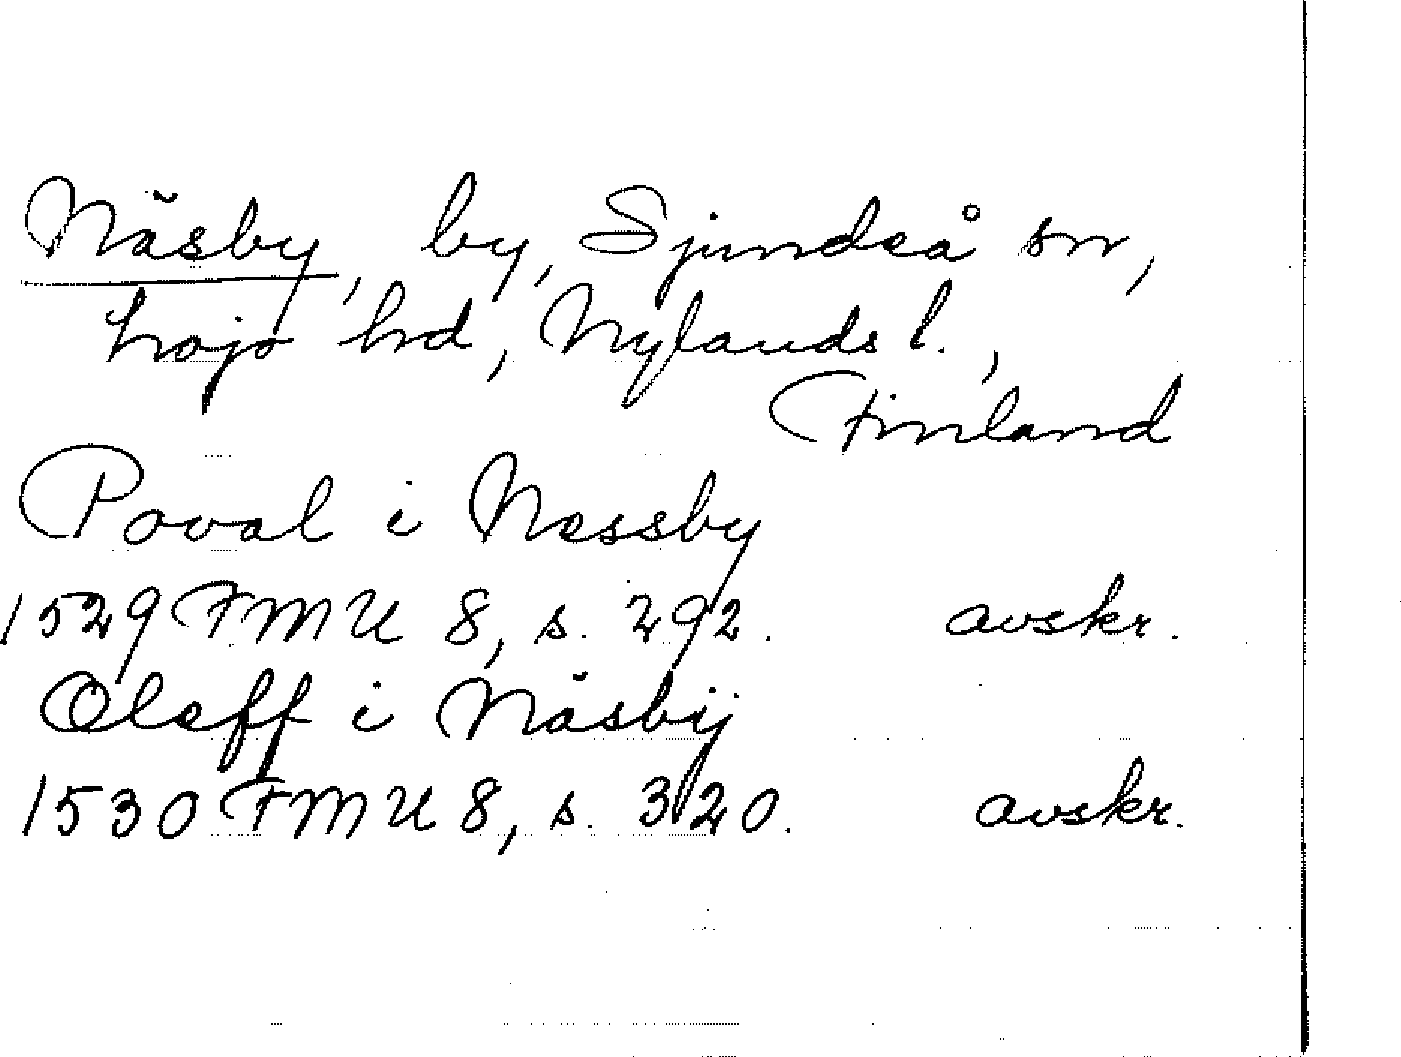 Näsby, by, Sjundeå sn,
Lojo hrd, Nylands l.,
Finland
Poval i Nessby
1529 FMU 8, s. 292. avskr.
Oleff i Näsbÿ
1530 FMU 8, s. 320. avskr.